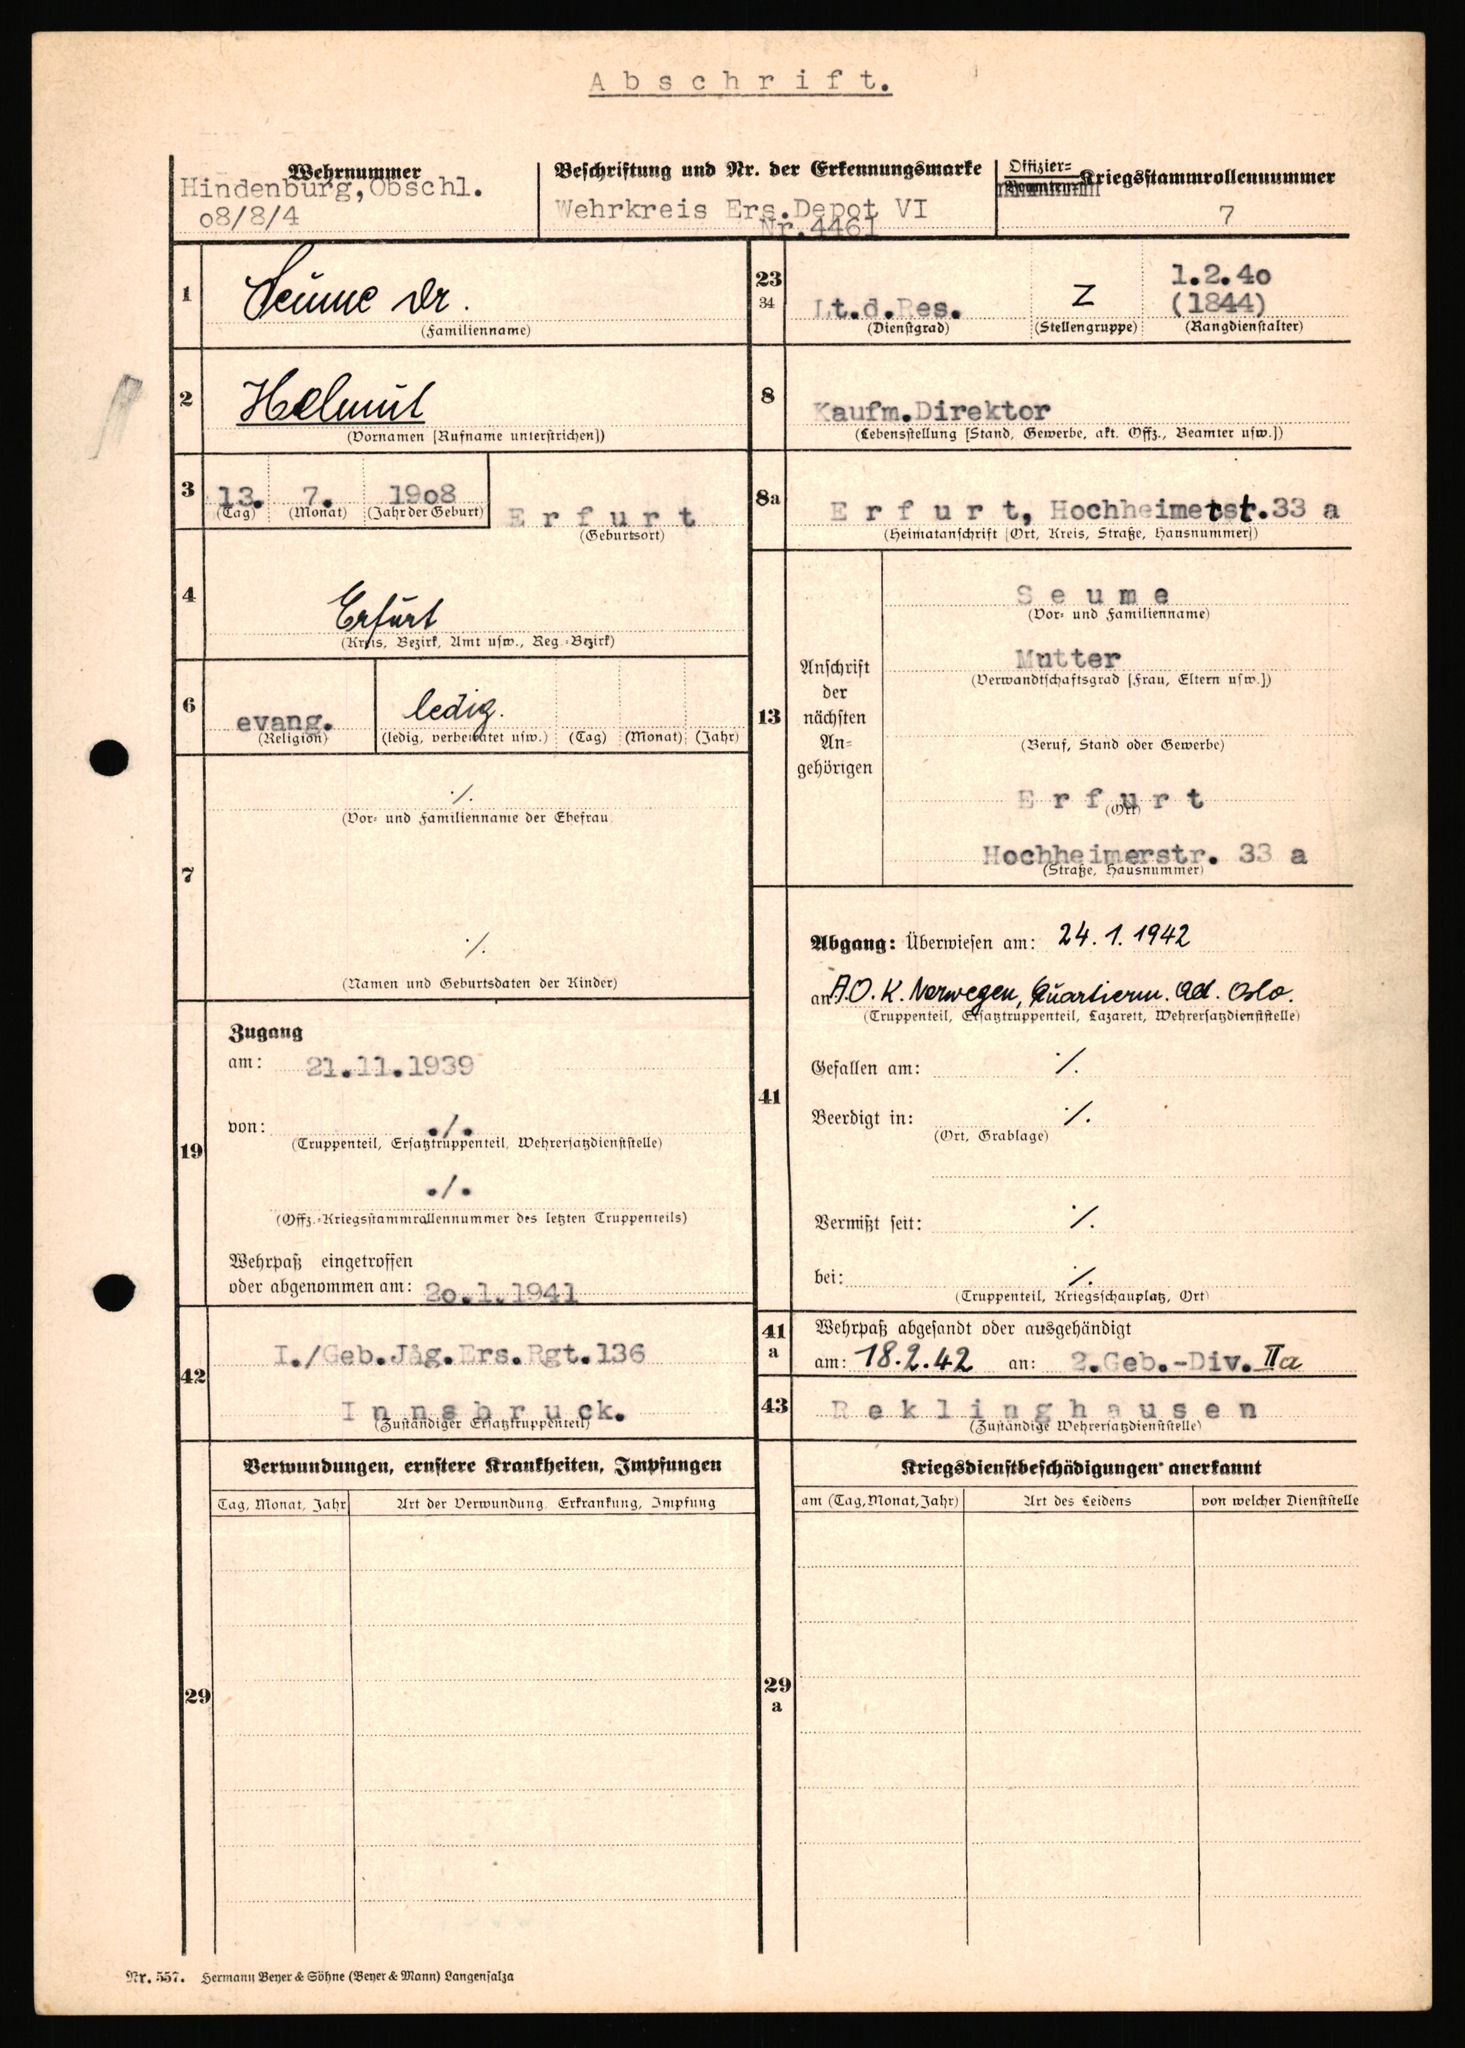 Abschrift.
Wehrnummer
Hindenburg, Obschl.
o8/8/4
Beschriftung und Nr. der Erkennungsmarke
Wehrkreis Ers.Depot VI
Nr.4461
Offizier-
Kriegsstammrollennummer
7
1
Seume Dr.
(Familienname)
2
Helmut
(Vornamen [Rufname unterstrichen])
3
13. 7. 19o8
(Tag) (Monat) (Jahr der Geburt)
Erfurt
(Geburtsort)
4
Erfurt
(Kreis, Bezirk, Amt usw., Reg.-Bezirk)
6
evang.
(Religion)
ledig.
(ledig, verheiratet usw.) (Tag) (Monat) (Jahr)
7
./.
(Vor- und Familienname der Ehefrau)
./.
(Namen und Geburtsdaten der Kinder)
19
Zugang
am: 21.11.1939
von: ./.
(Truppenteil, Ersatztruppenteil, Wehrersatzdienststelle)
./.
(Offz.-Kriegsstammrollennummer des letzten Truppenteils)
Wehrpaß eingetroffen
oder abgenommen am: 2o.1.1941
42
I./Geb.Jäg.Ers.Rgt.136
Innsbruck.
(Zuständiger Ersatztruppenteil)
23
34
Lt.d.Res.
(Dienstgrad)
Z
(Stellengruppe)
1.2.4o
(1844)
(Rangdienstalter)
8
Kaufm.Direktor
(Lebensstellung [Stand, Gewerbe, akt. Offz., Beamter usw.])
8a
Erfurt, Hochheimerstr.33 a
(Heimatanschrift [Ort, Kreis, Straße, Hausnummer])
13
Anschrift
der
nächsten
An-
gehörigen
Seume
(Vor- und Familienname)
Mutter
(Verwandtschaftsgrad [Frau, Eltern usw.])
(Beruf, Stand oder Gewerbe)
Erfurt
(Ort)
Hochheimerstr. 33 a
(Straße, Hausnummer)
41
Abgang: Überwiesen am: 24.1.1942
an A.O.K. Norwegen, Quartierm. Abt. Oslo.
(Truppenteil, Ersatztruppenteil, Lazarett, Wehrersatzdienststelle)
Gefallen am: ./.
Beerdigt in: ./.
(Ort, Grablage)
Vermißt seit: ./.
bei: ./.
(Truppenteil, Kriegsschauplatz, Ort)
41
a
Wehrpaß abgesandt oder ausgehändigt
am: 18.2.42 an: 2.Geb.-Div. IIa
43
Reklinghausen
(Zuständige Wehrersatzdienststelle)
29
Verwundungen, ernstere Krankheiten, Impfungen
Tag, Monat, Jahr
Art der Verwundung, Erkrankung, Impfung
29
a
Kriegsdienstbeschädigungen anerkannt
am (Tag, Monat, Jahr)
Art des Leidens
von welcher Dienststelle
Nr. 557. Hermann Beyer & Söhne (Beyer & Mann) Langensalza